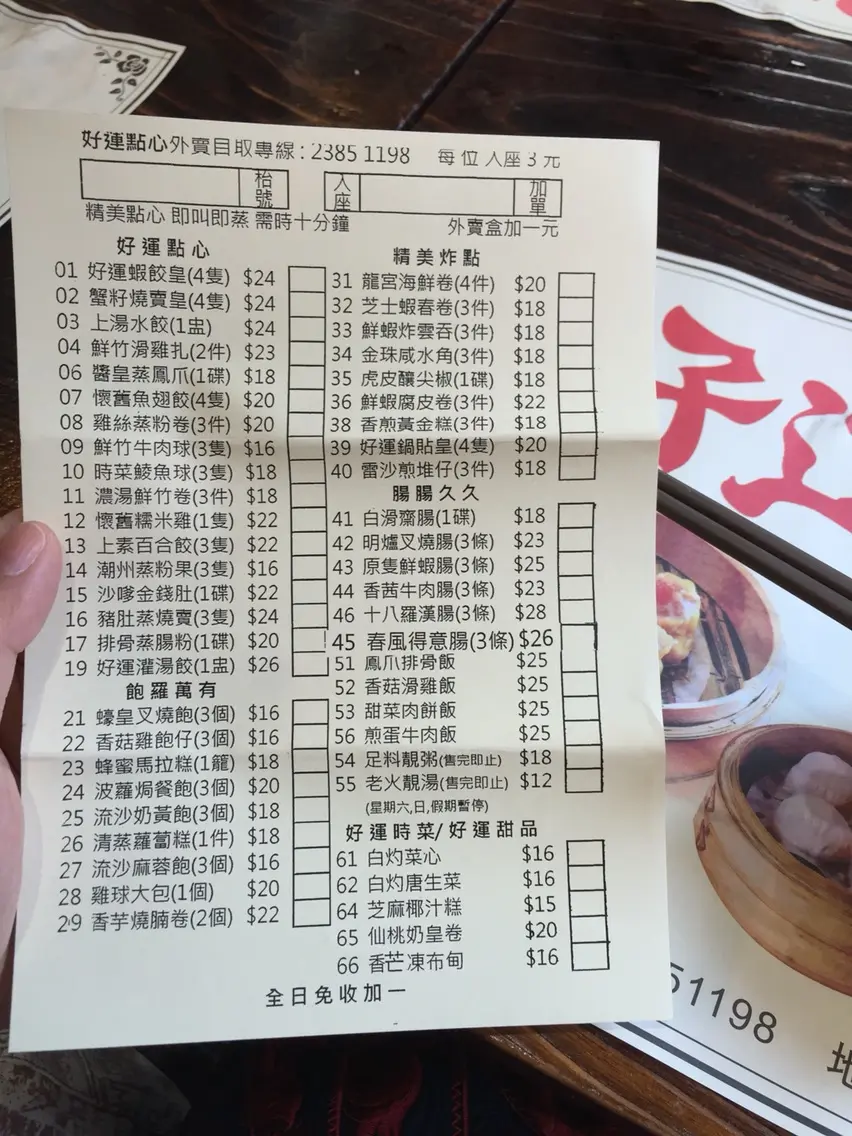 好運點心外賣自取專線：2385 1198 每位入座3元
枱號
入座
加單
精美點心 即叫即蒸 需時十分鐘 外賣盒加一元
好運點心
01 好運蝦餃皇(4隻) $24
02 蟹籽燒賣皇(4隻) $24
03 上湯水餃(1盅) $24
04 鮮竹滑雞扎(2件) $23
06 醬皇蒸鳳爪(1碟) $18
07 懷舊魚翅餃(4隻) $20
08 雞絲蒸粉卷(3件) $20
09 鮮竹牛肉球(3隻) $16
10 時菜鯪魚球(3隻) $18
11 濃湯鮮竹卷(3件) $18
12 懷舊糯米雞(1隻) $22
13 上素百合餃(3隻) $22
14 潮州蒸粉果(3隻) $16
15 沙嗲金錢肚(1碟) $22
16 豬肚蒸燒賣(3隻) $24
17 排骨蒸腸粉(1碟) $20
19 好運灌湯餃(1盅) $26
飽羅萬有
21 蠔皇叉燒飽(3個) $16
22 香菇雞飽仔(3個) $16
23 蜂蜜馬拉糕(1籠) $18
24 波蘿焗餐飽(3個) $20
25 流沙奶黃飽(3個) $18
26 清蒸蘿蔔糕(1件) $18
27 流沙麻蓉飽(3個) $16
28 雞球大包(1個) $20
29 香芋燒腩卷(2個) $22
精美炸點
31 龍宮海鮮卷(4件) $20
32 芝士蝦春卷(3件) $18
33 鮮蝦炸雲吞(3件) $18
34 金珠咸水角(3件) $18
35 虎皮釀尖椒(1碟) $18
36 鮮蝦腐皮卷(3件) $22
38 香煎黃金糕(3件) $18
39 好運鍋貼皇(4隻) $20
40 雷沙煎堆仔(3件) $18
腸腸久久
41 白滑齋腸(1碟) $18
42 明爐叉燒腸(3條) $23
43 原隻鮮蝦腸(3條) $25
44 香茜牛肉腸(3條) $23
46 十八羅漢腸(3條) $28
45 春風得意腸(3條) $26
51 鳳爪排骨飯 $25
52 香菇滑雞飯 $25
53 甜菜肉餅飯 $25
56 煎蛋牛肉飯 $25
54 足料靚粥(售完即止) $18
55 老火靚湯(售完即止) $12
(星期六,日,假期暫停)
好運時菜/好運甜品
61 白灼菜心 $16
62 白灼唐生菜 $16
64 芝麻椰汁糕 $15
65 仙桃奶皇卷 $20
66 香芒凍布甸 $16
全日免收加一
51198